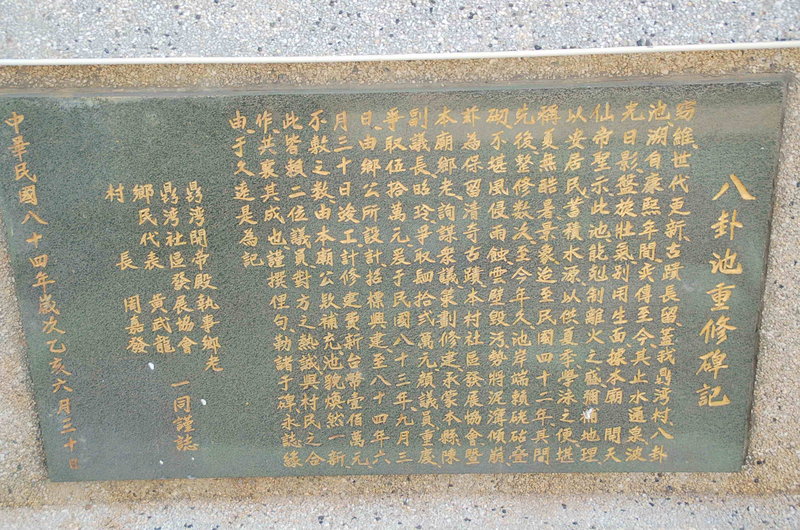 八卦池重修碑記
窃維世代更新古蹟長留蓋我鼎湾村八卦
池湖自康熙年間流傳至今其止水通泉波
光日影盤旋壯氣別用生面據本廟 關天
仙帝聖示此池能剋制離火之盛彌補地理
以安居民蓄積水源以供夏季學泳之便堪
稱夏無酷暑景象迨至民國四十二年其間
先後整修數次至今年久池岸端賴硓砧疊
砌不堪風侵雨蝕雲壁毀污勢將泥濘傾崩
玆為保留清奇古蹟本村社區發展協會暨
本廟鄉老詢謀眾議策劃修建承蒙本縣陳
副議長昭玲爭取肆拾貳萬元顏議員重慶
爭取伍拾萬元是于民國八十三年九月三
日由鄉公所設計招標興建至八十四年六
月三十日竣工計修建費新台幣壹佰萬元
不敷之數由本廟公款補充池貌煥然一新
此皆賴二位議員對方之熱誠與村民之合
作共襄其成也謹撰俚句勒諸于碑永誌緣
由于久遠是為記
鼎湾開帝殿執事鄉老
鼎湾社區發展協會
鄉民代表 黃武龍
村長 周嘉發
一同謹誌
中華民國八十四年歲次乙亥六月三十日